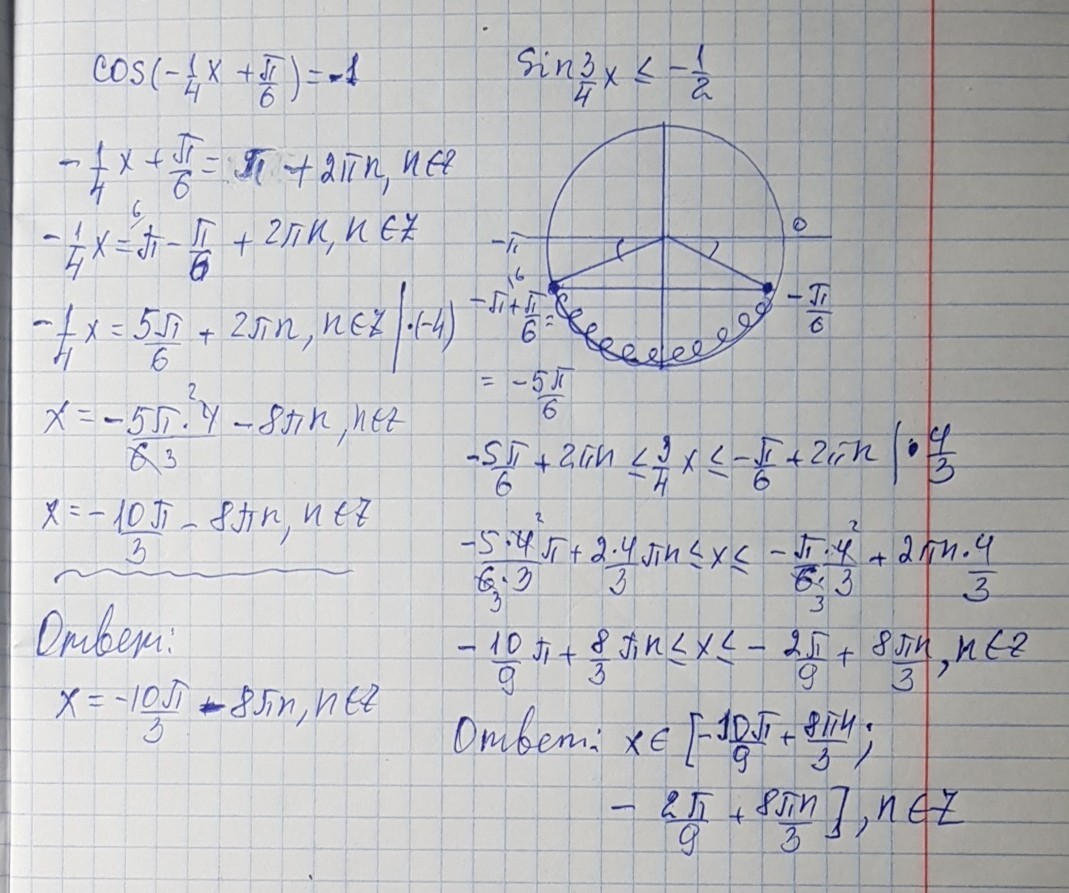 cos(-1/4 x + π/6) = -1
-1/4 x + π/6 = π + 2πn, n∈Z
-1/4 x = π - π/6 + 2πn, n∈Z
6
-1/4 x = 5π/6 + 2πn, n∈Z | ·(-4)
x = -5π·4/6 - 8πn, n∈Z
2
3
x = -10π/3 - 8πn, n∈Z
Ответ:
x = -10π/3 - 8πn, n∈Z
Sin 3/4 x ≤ -1/2
-π
0
-π + π/6 =
6
-π/6
= -5π/6
-5π/6 + 2πn ≤ 3/4 x ≤ -π/6 + 2πn | · 4/3
-5·4/6·3 π + 2·4/3 πn ≤ x ≤ -π·4/6·3 + 2πn·4/3
2 2
3 3
-10/9 π + 8/3 πn ≤ x ≤ -2π/9 + 8πn/3, n∈Z
Ответ: x∈[-10π/9 + 8πn/3;
-2π/9 + 8πn/3], n∈Z